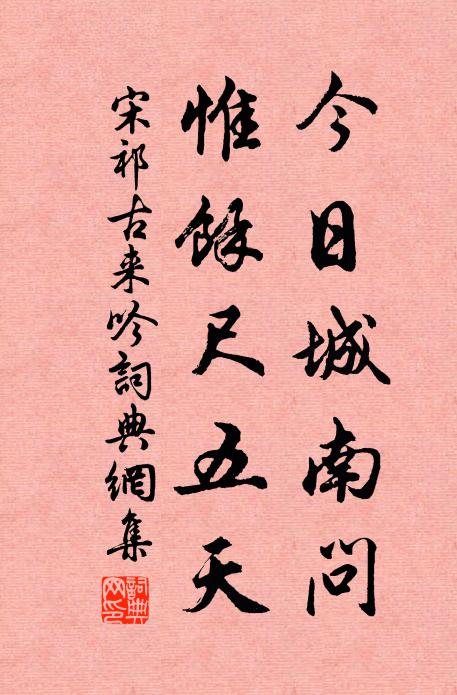 今日城南問
惟餘尺五天
宋祁古来吟詞典網集
詞典網印